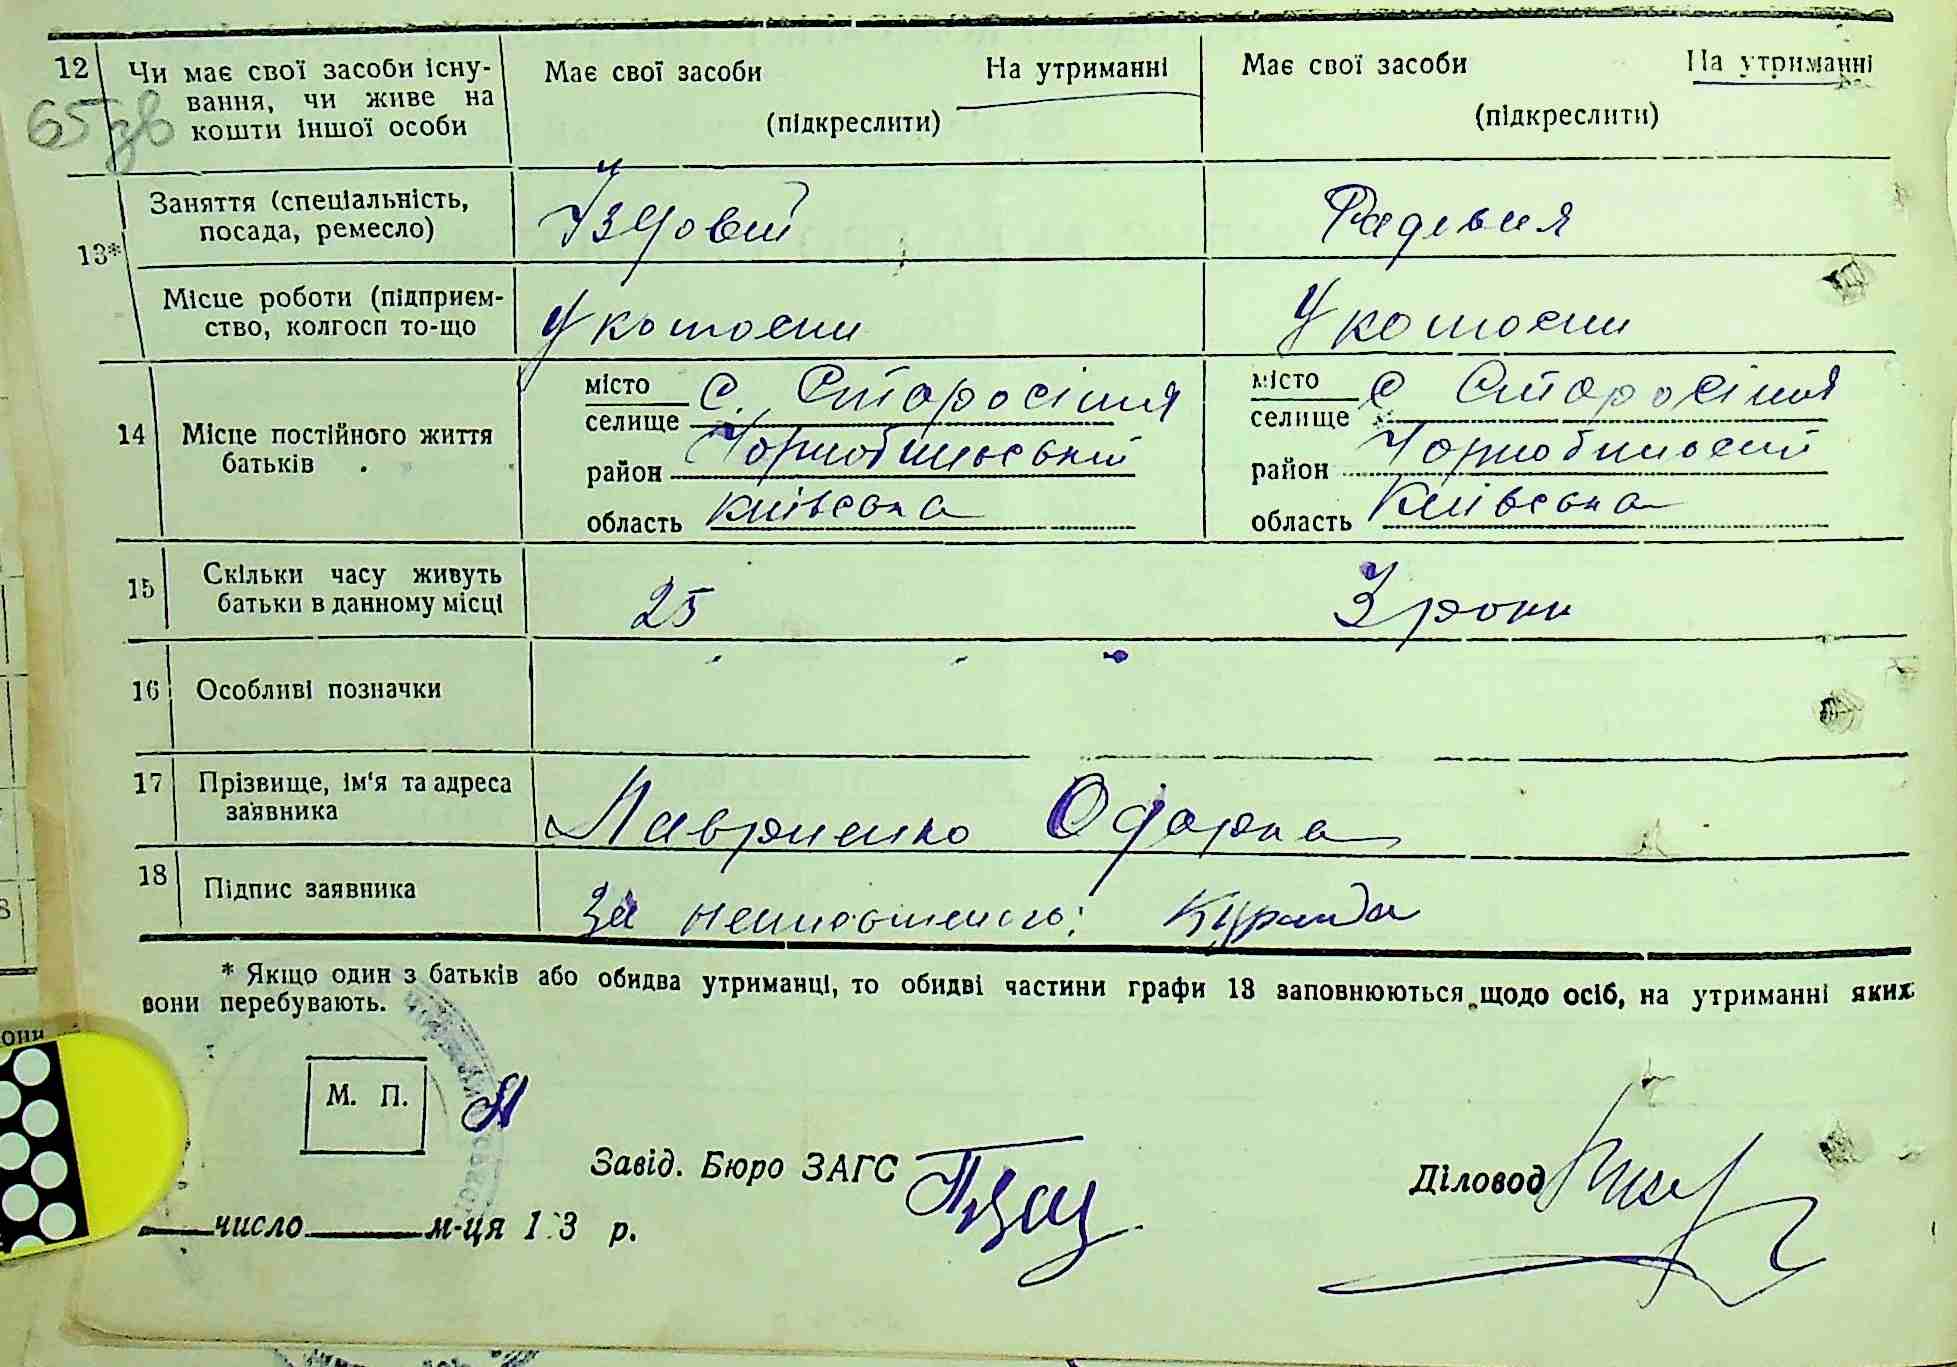 12 Чи має свої засоби існу-
вання, чи живе на
кошти іншої особи
Має свої засоби На утриманні
(підкреслити)
Має свої засоби На утриманні
(підкреслити)
65 зв
13* Заняття (спеціальність,
посада, ремесло)
Їздовий
Рядовая
Місце роботи (підприєм-
ство, колгосп то-що
У колгоспи
У колгоспи
14 Місце постійного життя
батьків
місто
селище с. Старосілля
район Чорнобильський
область Київська
місто
селище с Старосілля
район Чорнобильский
область Київська
15 Скільки часу живуть
батьки в данному місці
25
3 роки
16 Особливі позначки
17 Прізвище, ім'я та адреса
заявника
Лавриенко Одарка
18 Підпис заявника
За неписьменого:
* Якщо один з батьків або обидва утриманці, то обидві частини графи 13 заповнюються щодо осіб, на утриманні яких
вони перебувають.
М. П.
Завід. Бюро ЗАГС
Діловод
число м-ця 193 р.